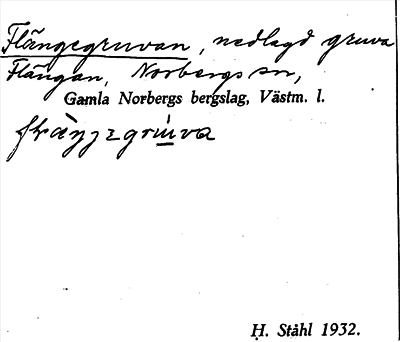 Flängegruvan, nedlagd gruva
Flängan, Norbergs sn,
Gamla Norbergs bergslag, Västm. l.
H. Ståhl 1932.